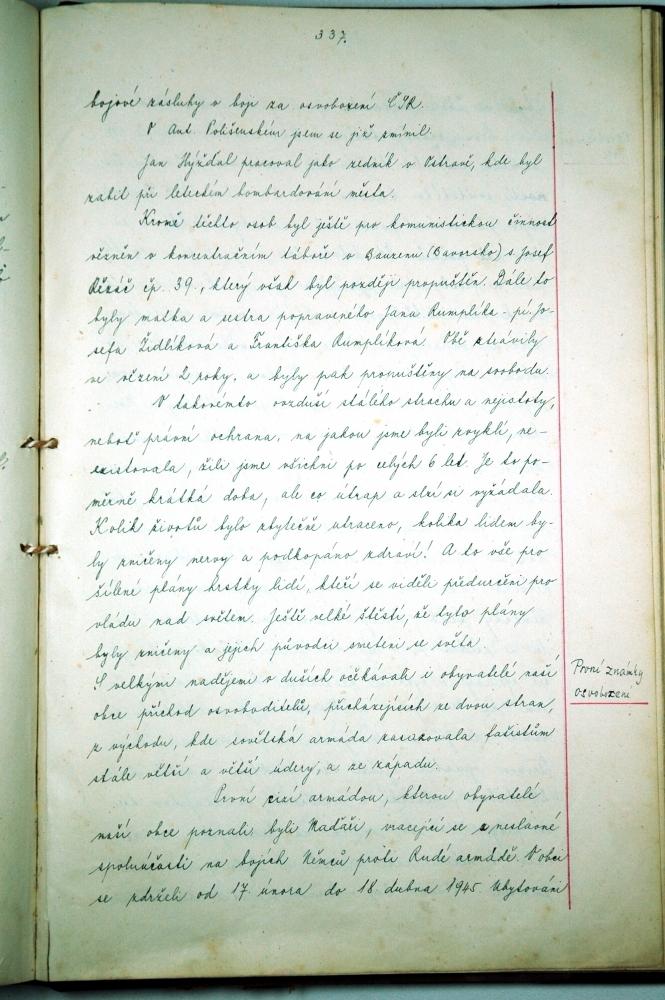 337.
bojové zásluhy v boji za osvobození ČSR.
O Ant. Polišenském jsem se již zmínil.
Jan Hýžďal pracoval jako zedník v Ostravě, kde byl
zabit při leteckém bombardování města.
Kromě těchto osob byl ještě pro komunistickou činnost
vězněn v koncentračním táboře v Bauzenu (Bavorsko) s. Josef
Řezáč čp. 39., který však byl později propuštěn. Dále to
byly matka a sestra popraveného Jana Rumplíka - pí. Jo-
sefa Židlíková a Františka Rumplíková. Obě strávily
ve vězení 2 roky, a byly pak propuštěny na svobodu.
V takovémto ovzduší stálého strachu a nejistoty,
neboť právní ochrana, na jakou jsme byli zvyklí, ne-
existovala, žili jsme všichni po celých 6 let. Je to po-
měrně krátká doba, ale co útrap a slzí si vyžádala.
Kolik životů bylo zbytečně utraceno, kolika lidem by-
ly zničeny nervy a podkopáno zdraví! A to vše pro
šílené plány hrstky lidí, kteří se viděli předurčeni pro
vládu nad světem. Ještě velké štěstí, že tyto plány
byly zničeny a jejich původci smeteni se světa
S velkými nadějemi v duších očekávali i obyvatelé naší
obce příchod osvoboditelů, přicházejících ze dvou stran,
z východu, kde sovětská armáda zasazovala fašistům
stále větší a větší údery, a ze západu.
První znánky
osvobození
První cizí armádou, kterou obyvatelé
naší obce poznali, byli Maďaři, vracející se z neslavné
spoluúčasti na bojích Němců proti Rudé armádě. V obci
se zdrželi od 17. února do 18. dubna 1945. Ubytováni